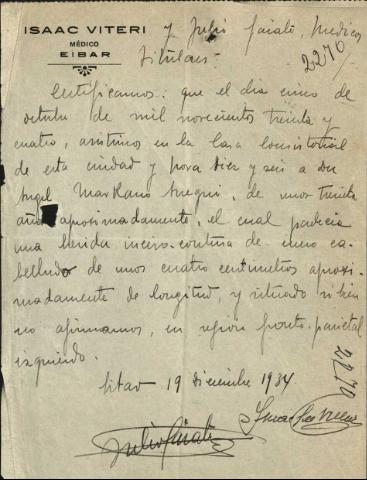 ISAAC VITERI
MÉDICO
EIBAR
y Julio , Medicos
titulares-
2276
Certificamos: que el dia cinco de
octubre de mil novecientos treinta y
cuatro, asistimos en la Casa Consistorial
de esta ciudad y hora diez y seis a Don
Angel , de unos treinta
años aproximadamente, el cual padecia
una herida inciso-contusa de cuero ca-
belludo de unos cuatro centimetros aproxi-
madamente de longitud, y situado si bien
no afirmamos, en region fronto-parietal
izquierdo.
Eibar 19 diciembre 1934
2270
Julio